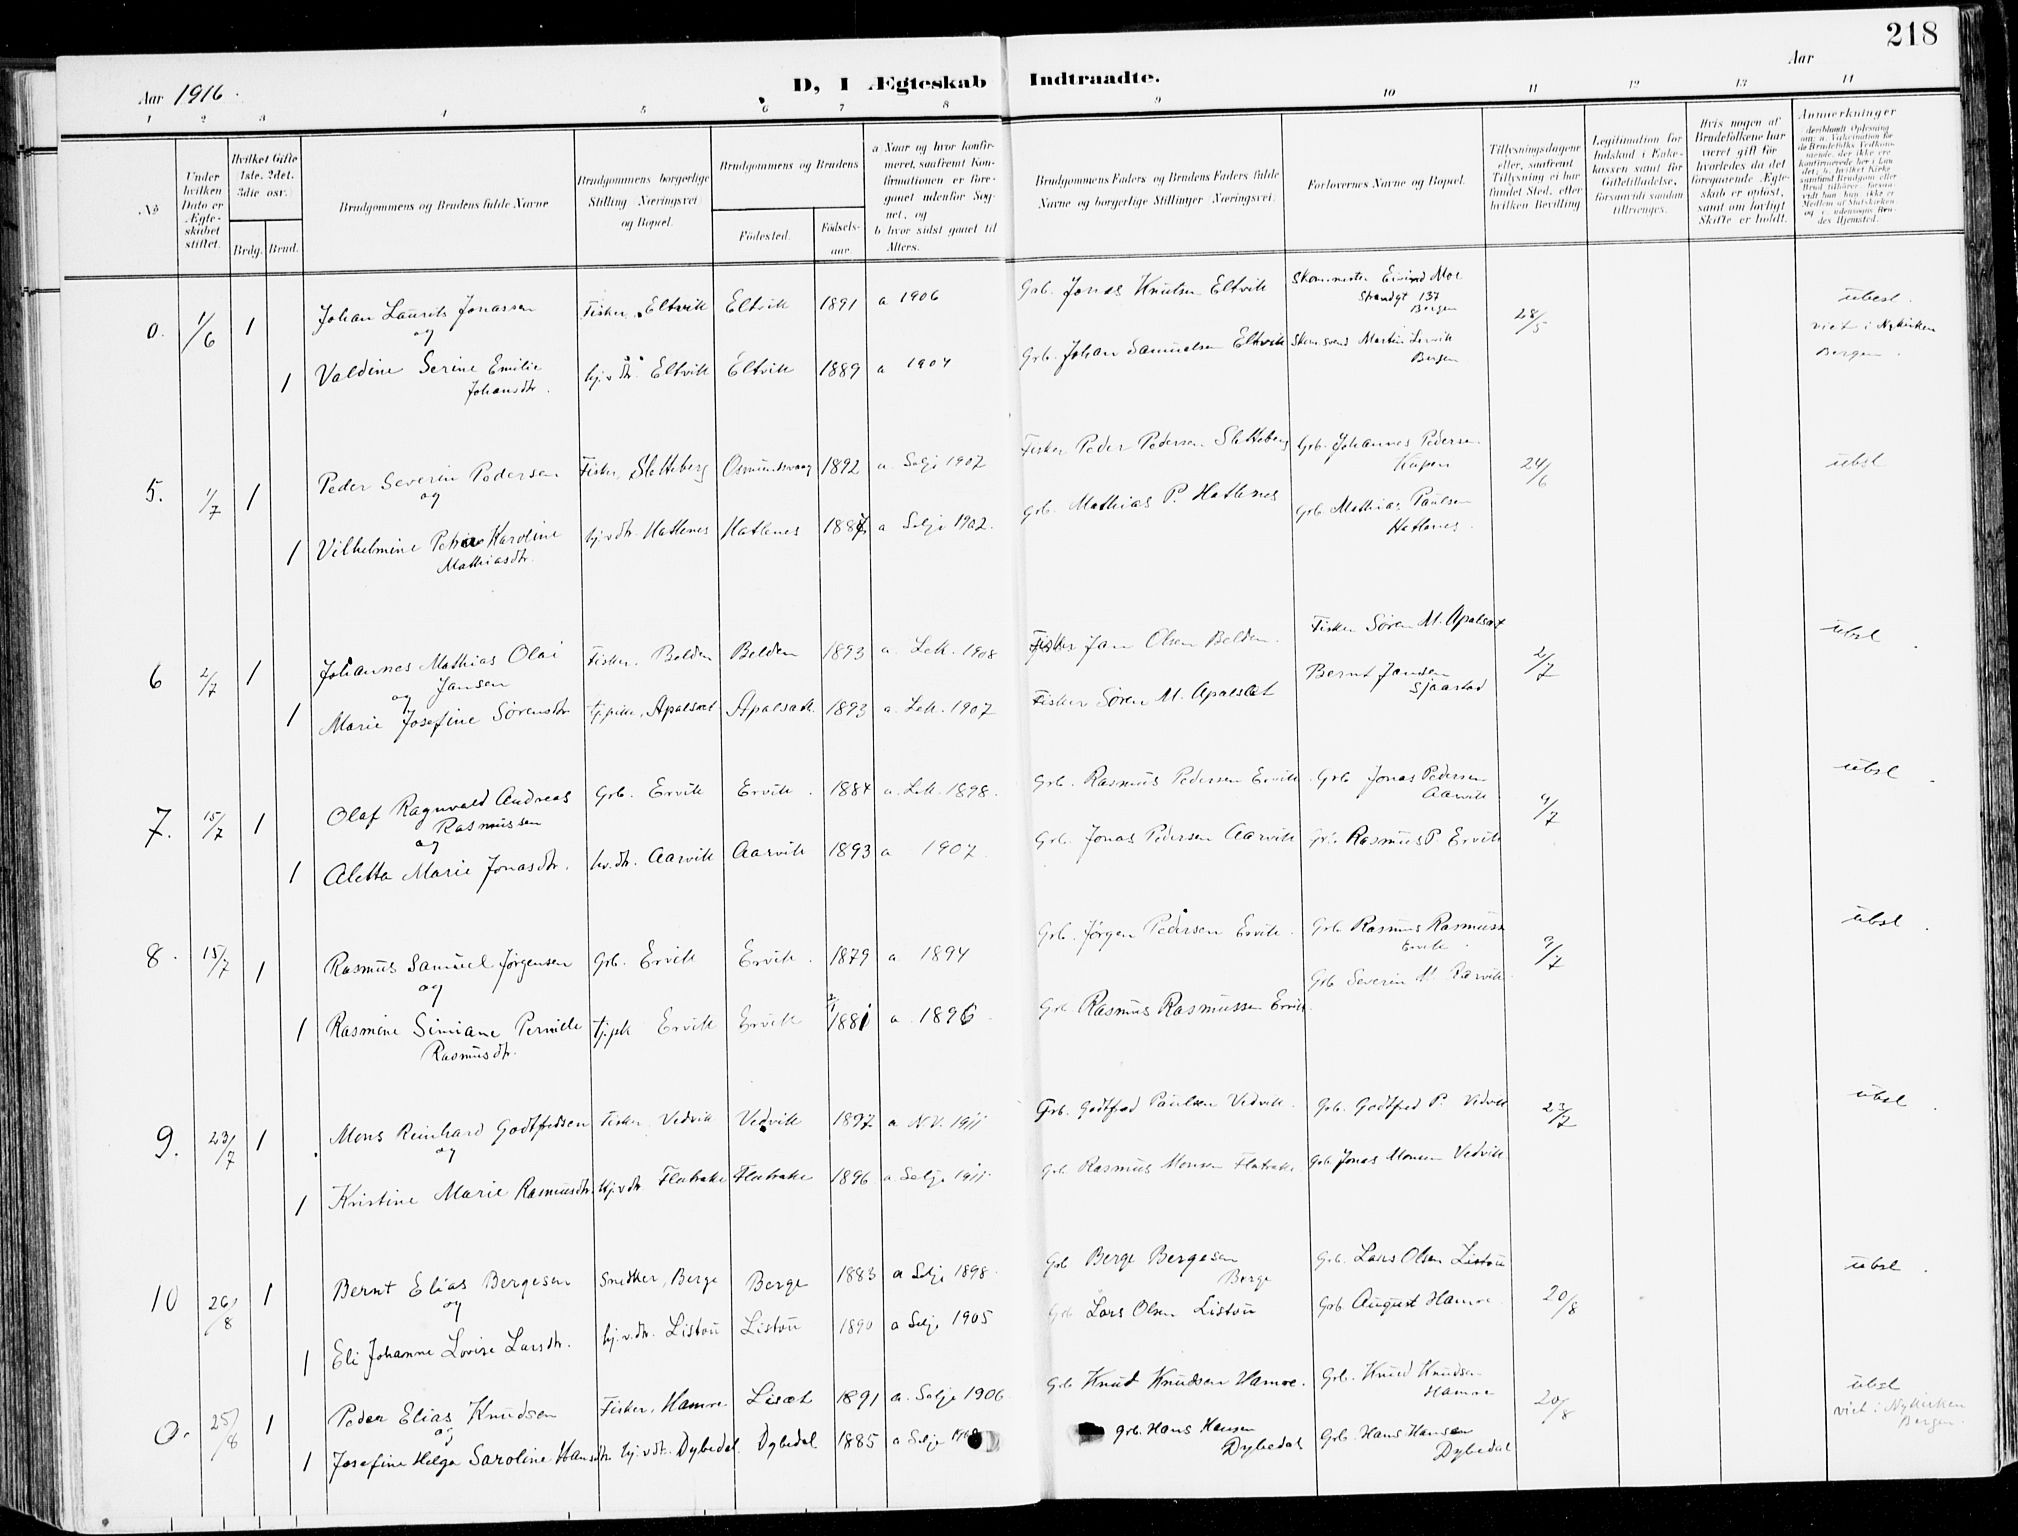 218
Aar 1916.
D, I Ægteskab Indtraadte.
Aar
1 2 3 4 5 6 7 8 9 10 11 12 13 14
No
Under hvilken Dato er Ægteskabet stiftet.
Hvilket Gifte 1ste, 2det, 3die osv.
Brdg. Brud.
Brudgommens og Brudens fulde Navne
Brudgommens borgerlige Stilling Næringsvei og Bopæl.
Brudgommens og Brudens
Fødested.
Fødsels-aar
a Naar og hvor konfirmeret, saafremt Konfirmationen er foregaaet udenfor Sognet, og
b hvor sidst gaaet til Alters.
Brudgommens Faders og Brudens Faders fulde Navne og borgerlige Stillinger Næringsvei.
Forlovernes Navne og Bopæl.
Tillysningsdagene eller, saafremt Tillysning ei har fundet Sted, efter hvilken Bevilling
Legitimation for Indskud i Enkekassen samt for Giftetilladelse, forsaavidt saadan tiltrænges.
Hvis nogen af Brudefolkene har været gift før hvorledes da det foregaaende Ægteskab er opløst, samt om lovligt Skifte er holdt.
Anmerkninger
0. 1/6 1 Johan Laurits Jonassen Fisker, Eltvik Eltvik 1891 a 1906 Grb. Jonas Knutsen Eltvik Skom.mester Eivind Moe Strandgt 137 Bergen 28/5 ubesl.
og
1 Valdine Serine Emilie Johansdtr. hj.v.dtr. Eltvik Eltvik 1889 a 1904 Grb. Johan Samuelsen Eltvik Skom.svend Martin Lervik Bergen viet i Nykirken Bergen.
5. 1/7 1 Peder Severin Pedersen Fisker, Sletteberg Osmundsvaag 1892 a. Selje 1907 Fisker Peder Pedersen Sletteberg Grb. Johannes Pedersen Kapen 24/6 ubsl
og
1 Vilhelmine Petra Karoline Mathiasdtr. hj.v.dtr. Hatlenes Hatlenes 1887 a Selje 1902. Grb. Mathias P. Hatlenes Grb. Mathias Paulsen Hatlenes.
6 2/7 1 Johannes Mathias Olai Jansen Fisker. Belden Belden 1893 a. Leik. 1908 Fisker Jan Olsen Belden. Fisker Søren M. Apalset 2/7 ubsl.
og
1 Marie Josefine Sørensdtr tj.pike, Apalset Apalset. 1893 a. Leik. 1907 Fisker Søren M. Apalset Bernt Jansen Sjaastad
7. 15/7 1 Olaf Ragnvald Andreas Rasmussen Grb. Ervik Ervik. 1884 a. Leik. 1898. Grb. Rasmus Pedersen Ervik Grb Jonas Pedersen Aarvik 9/7 ubsl.
og
1 Aletta Marie Jonasdtr. hv.dtr. Aarvik Aarvik 1893 a 1907 Grb. Jonas Pedersen Aarvik Grb Rasmus P. Ervik
8. 15/7 1 Rasmus Samuel Jørgensen Grb. Ervik Ervik. 1879 a 1894 Grb. Jørgen Pedersen Ervik. Grb Rasmus Rasmussen Ervik 9/7 ubsl.
og
1 Rasmine Simiane Pernille Rasmusdtr. tj.pk Ervik Ervik 1881 a. 1896. Grb Rasmus Rasmussen Ervik Grb Severin M. Aarvik
9. 23/7 1 Mons Reinhard Godtfredsen Fisker Vedvik Vedvik 1897 a N.V. 1911 Grb. Godtfred Paulsen Vedvik. Grb. Godtfred P. Vedvik 23/7 ubsl.
og
1 Kristine Marie Rasmusdtr. hj.v.dtr Flatrake Flatrake 1896 a Selje 1911. Grb Rasmus Monsen Flatrake Grb Jonas Monsen Vedvik
10 26/8 1 Bernt Elias Bergesen Snedker, Berge Berge 1883 a Selje 1898. Grb Berge Bergesen Berge Grb. Lars Olsen Listou 20/8 ubsl.
og
1 Eli Johanne Lovise Larsdtr. hj.v.dtr. Listou Listou 1890 a Selje 1905 Grb Lars Olsen Listou Grb August Hamre.
0. 25/8 1 Peder Elias Knudsen Fisker, Hamre Liset 1891 a. Selje 1906 Grb Knud Knudsen Hamre. Grb. Knud Knudsen Hamre 20/8 ubsl
og
1 Josefine Helga Saroline Hansdtr hj.v.dtr. Dybedal Dybedal 1885 a Selje Grb. Hans Hansen Dybedal Grb. Hans Hansen Dybedal viet i Nykirken Bergen.